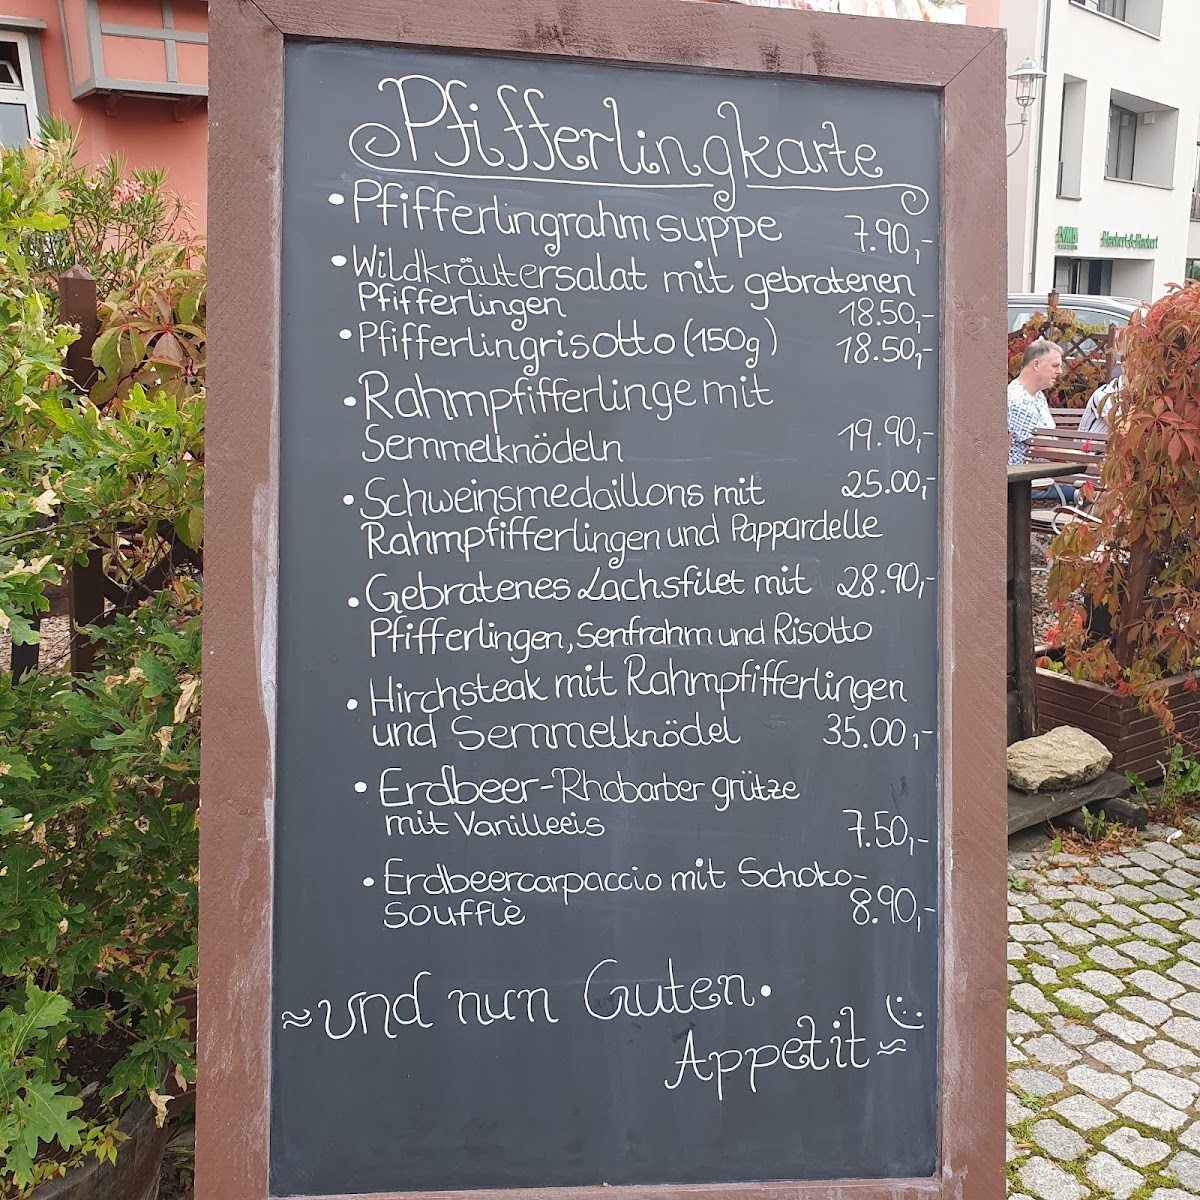 Pfifferlingkarte
• Pfifferlingrahmsuppe 7.90,-
• Wildkräutersalat mit gebratenen
Pfifferlingen 18.50,-
• Pfifferlingrisotto (150g) 18.50,-
• Rahmpfifferlinge mit
Semmelknödeln 19.90,-
• Schweinsmedaillons mit 25.00,-
Rahmpfifferlingen und Pappardelle
• Gebratenes Lachsfilet mit 28.90,-
Pfifferlingen, Senfrahm und Risotto
• Hirchsteak mit Rahmpfifferlingen
und Semmelknödel 35.00,-
• Erdbeer-Rhabarber grütze
mit Vanilleeis 7.50,-
• Erdbeercarpaccio mit Schoko-
Soufflè 8.90,-
≈und nun Guten.
Appetit≈ :)